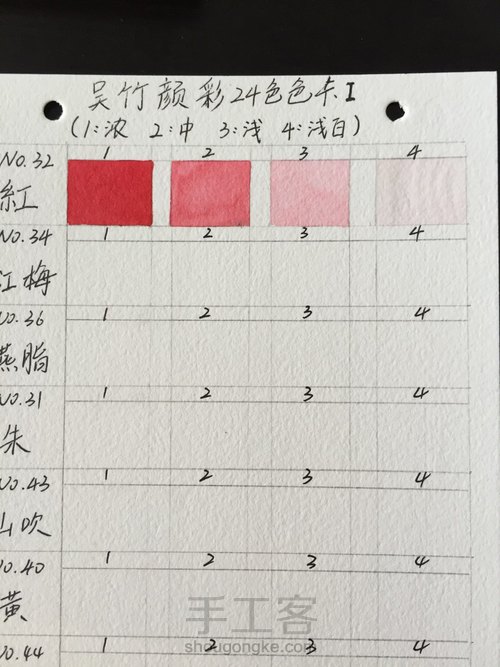 吴竹颜彩24色色卡I
(1:浓 2:中 3:浅 4:浅白)
No.32 1 2 3 4
紅
No.34 1 2 3 4
江梅
No.36 1 2 3 4
燕脂
No.31 1 2 3 4
朱
No.43 1 2 3 4
山吹
No.40 1 2 3 4
黄
No.44 1 2 3 4
手工客
shougongke.com